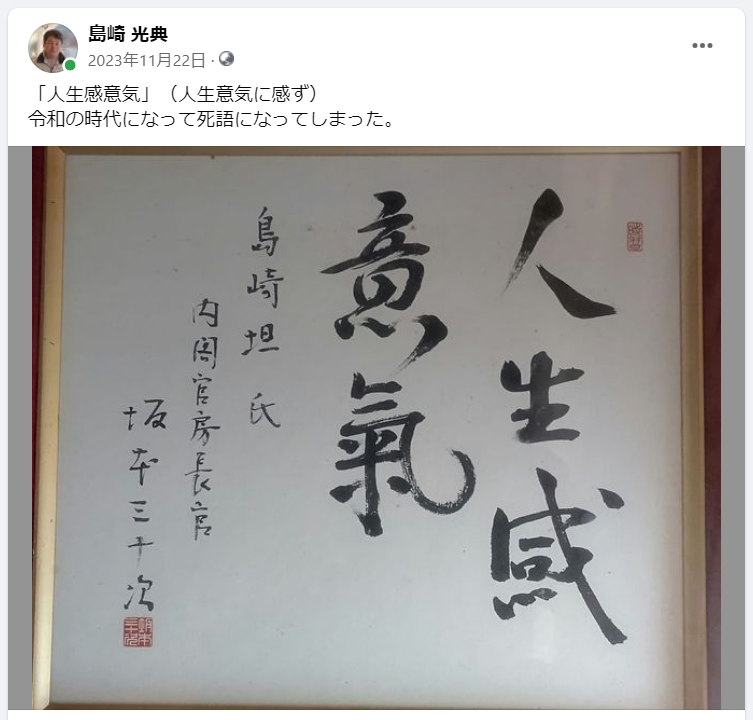 島崎 光典
2023年11月22日
「人生感意気」（人生意気に感ず）
令和の時代になって死語になってしまった。
人生感
意氣
島崎坦氏
内閣官房長官
坂本三十次